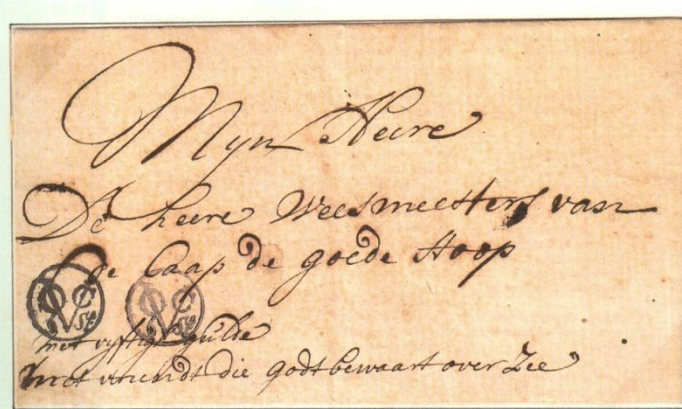 Myn Heere
De heere Weesmeesters van
de Caap de goede Hoop
met vyftigh gulde
met vrindt die godt bewaart over Zee